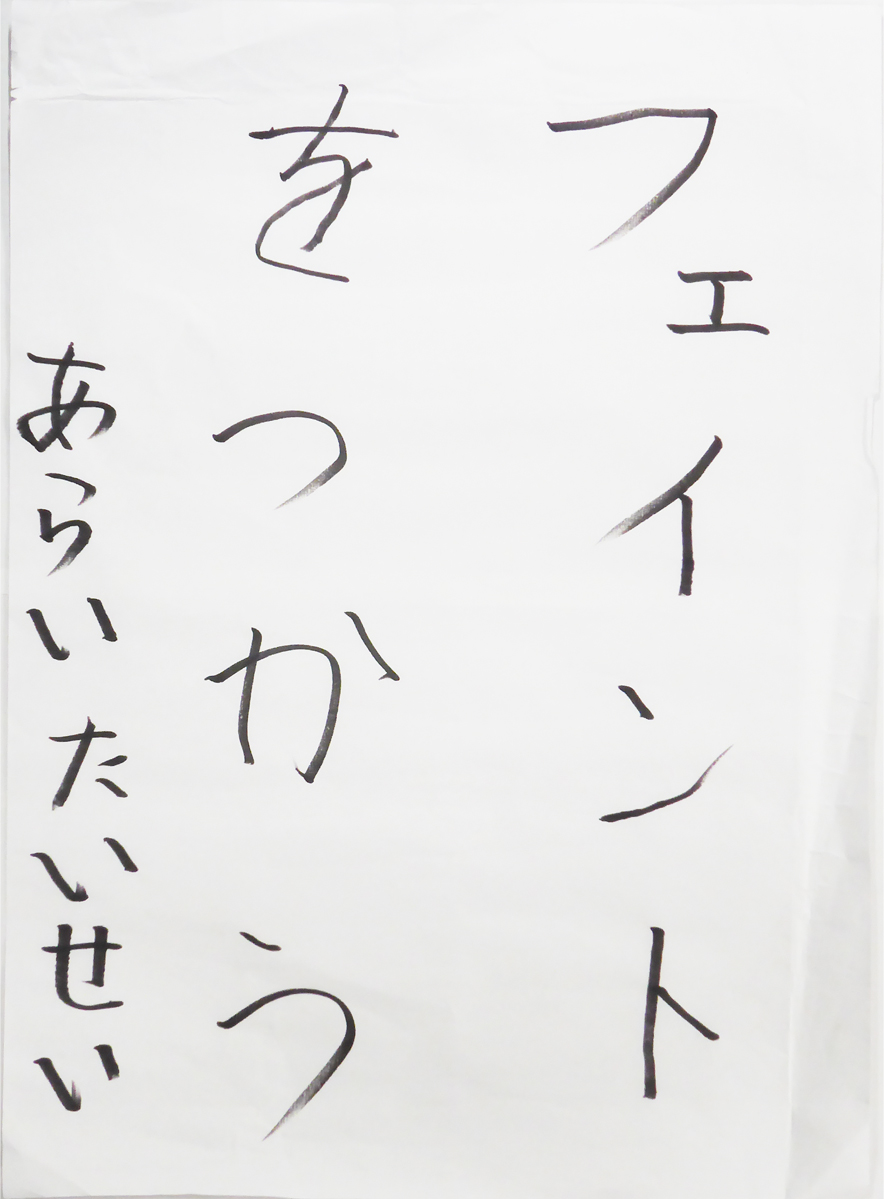 フェイント
をつかう
あらいたいせい